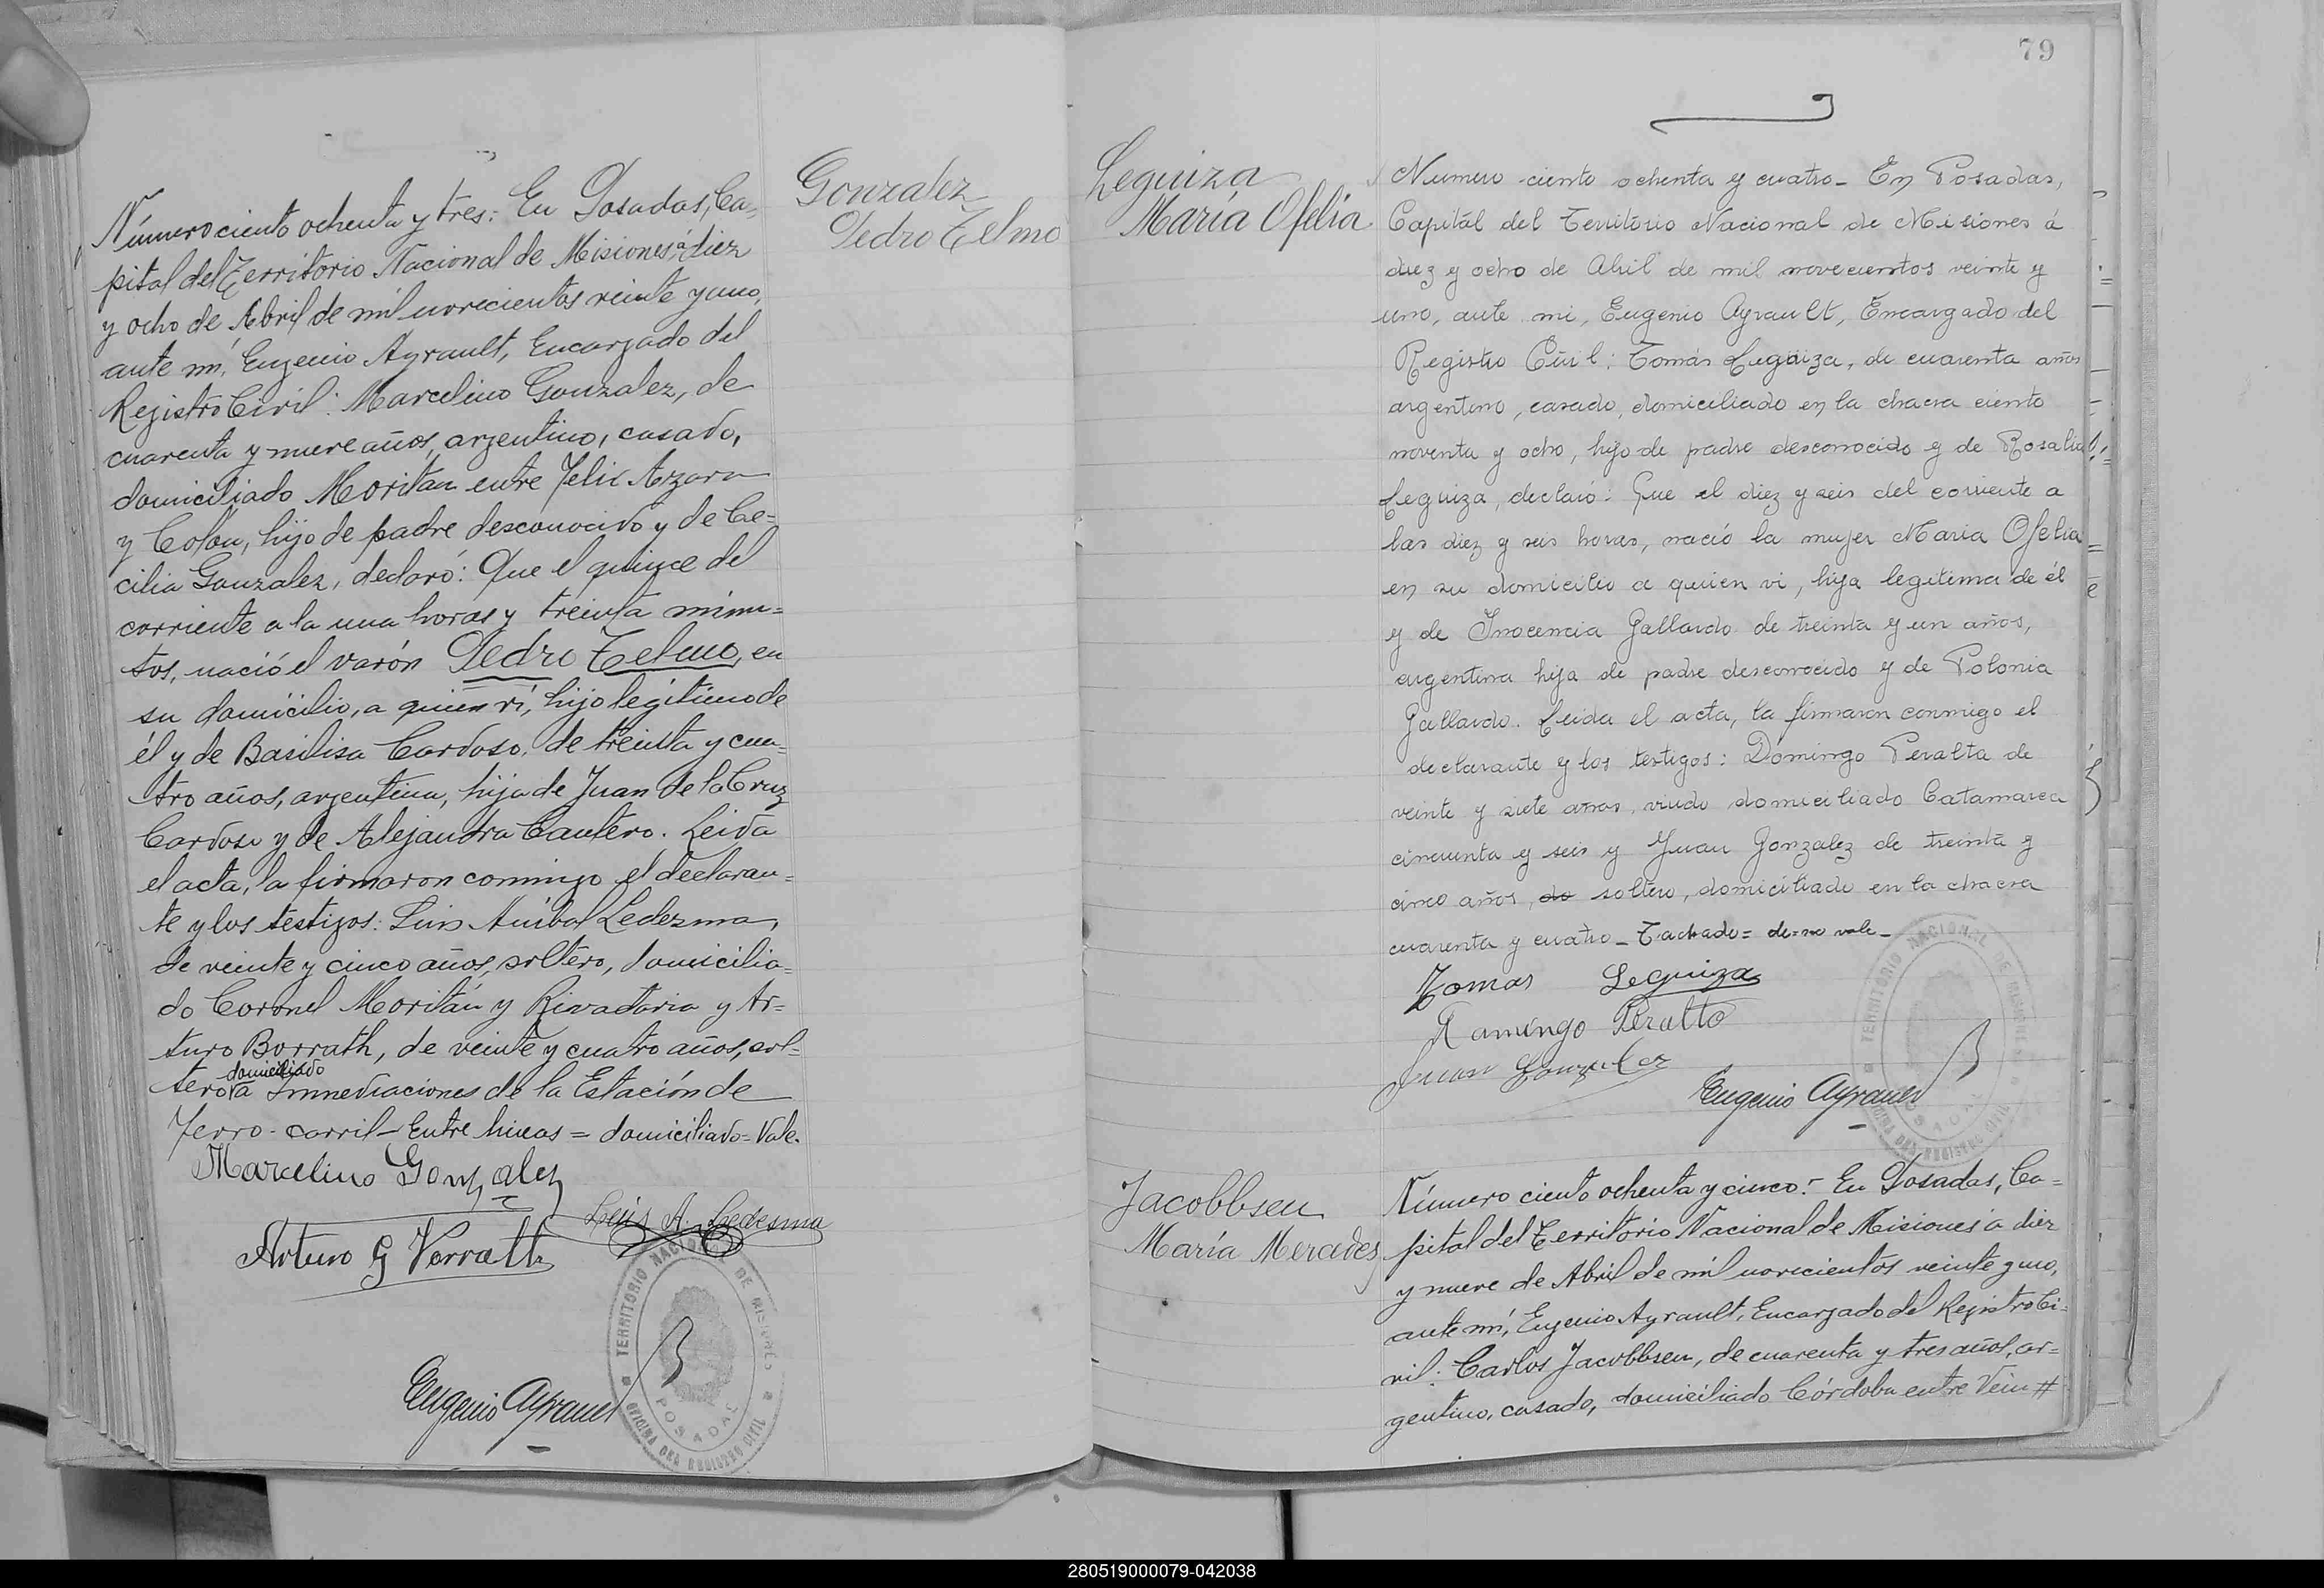 Número ciento ochenta y tres: En Posadas, Ca-
pital del Territorio Nacional de Misiones á diez
y ocho de Abril de mil novecientos veinte y uno,
ante mí, Eugenio Ayrault, Encargado del
Registro Civil: Marcelino Gonzalez, de
cuarenta y nueve años, argentino, casado,
domiciliado Moritán entre Felix Azara
y Colón, hijo de padre desconocido y de Ce-
cilia Gonzalez, declaró: Que el quince del
corriente a la una horas y treinta minu-
tos, nació el varón Pedro Telmo, en
su domicilio, a quien ví, hijo legítimo de
él y de Basilisa Cardoso, de treinta y cua-
tro años, argentina, hija de Juan de la Cruz
Cardoso y de Alejandra Cantero. Leida
el acta, la firmaron conmigo el declaran-
te y los testigos: Luis Aníbal Ledezma,
de veinte y cinco años, soltero, domicilia-
do Coronel Moritán y Rivadavia y Ar-
turo Borrath, de veinte y cuatro años, sol-
domiciliado
tero, a Inmediaciones de la Estación de
Ferro-carril - Entre lineas = domiciliado = Vale.
Marcelino Gonzalez
Luis A. Ledesma
Arturo G Verrath
Eugenio Ayrault
TERRITORIO NACIONAL DE MISIONES
POSADAS
OFICINA DEL REGISTRO CIVIL
Gonzalez
Pedro Telmo
79
Leguiza
María Ofelia
Numero ciento ochenta y cuatro - En Posadas,
Capitál del Territorio Nacional de Misiones á
diez y ocho de Abril de mil novecientos veinte y
uno, ante mi, Eugenio Ayrault, Encargado del
Registro Civil: Tomás Leguiza, de cuarenta años
argentino, casado, domiciliado en la chacra ciento
noventa y ocho, hijo de padre desconocido y de Rosalia
Leguiza, declaró: Que el diez y seis del corriente a
las diez y seis horas, nació la mujer Maria Ofelia
en su domicilio a quien vi, hija legitima de él
y de Inocencia Gallardo de treinta y un años,
argentina hija de padre desconocido y de Polonia
Gallardo. Leida el acta, la firmaron conmigo el
declarante y los testigos: Domingo Peralta de
veinte y siete años, viudo domiciliado Catamarca
cincuenta y seis y Juan Gonzalez de treinta y
cinco años, de soltero, domiciliado en la chacra
cuarenta y cuatro - Tachado = de = no vale -
Tomas Leguiza
Damingo Peralta
Juan Gonzalez
Eugenio Ayrault
TERRITORIO NACIONAL DE MISIONES
POSADAS
OFICINA DEL REGISTRO CIVIL
Jacobbsen
María Mercedes
Número ciento ochenta y cinco: - En Posadas, Ca-
pital del Territorio Nacional de Misiones á diez
y nueve de Abril de mil novecientos veinte y uno,
ante mí, Eugenio Ayrault, Encargado del Registro Ci-
vil: Carlos Jacobbsen, de cuarenta y tres años, ar-
gentino, casado, domiciliado Córdoba entre Vein #
280519000079-042038